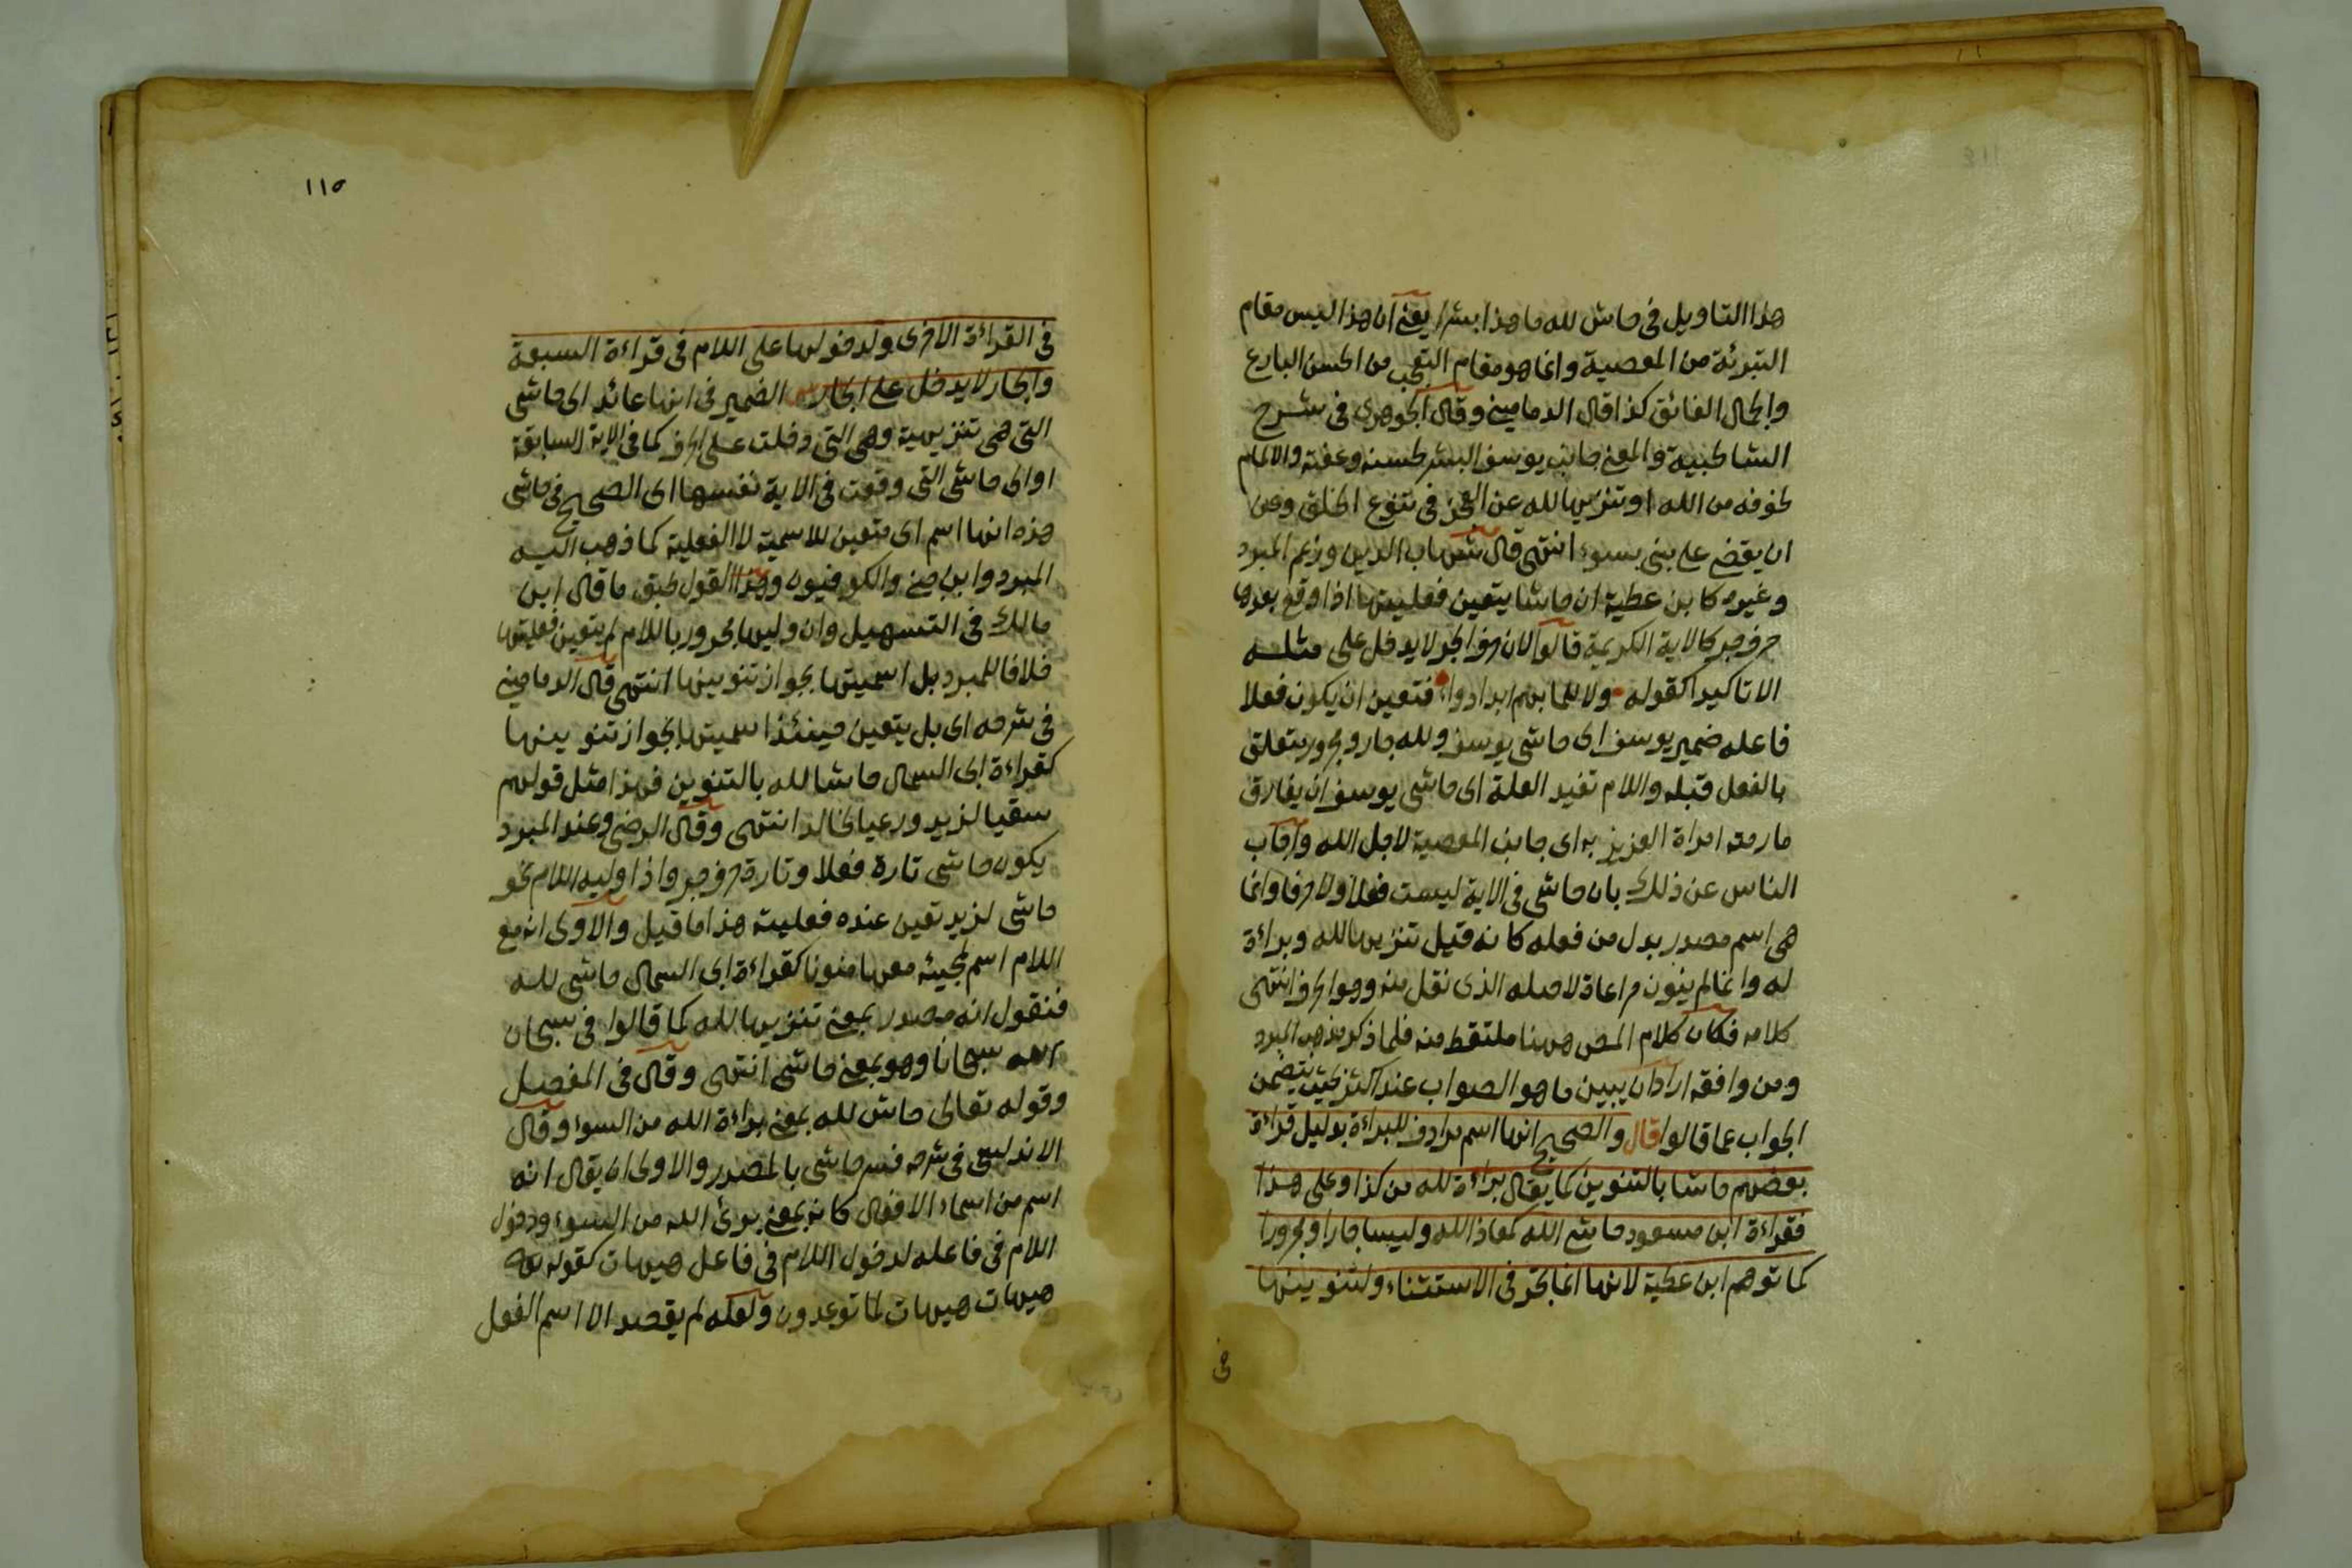 هذا التاويل فى حاش لله ما هذا بشرا يعنى ان هذا ليس مقام
التبرئة من المعصية وانما هو مقام التعجب من الحسن البارع
والجمال الفائق كذا قال الدمامينى وقال الجوهرى فى شرح
الشاطبية والمعنى جانب يوسف البشر لحسنه وعفته والالمام
لخوفه من الله او تنزيها لله عن العجز فى تنوع الخلق ومن
ان يقضى على بنى بسوء انتهى قال شهاب الدين وزعم المبرد
وغيره كابن عطية ان حاشا يتعين فعليتها اذا وقع بعدها
حرف جر كالاية الكريمة قالوا لان حرف الجر لا يدخل على مثله
الا تاكيدا كقوله ولا للما بهم ابدا دواء فتعين ان يكون فعلا
فاعله ضمير يوسف اى حاشى يوسف ولله جار ومجرور يتعلق
بالفعل قبله واللام تفيد العلة اى حاشى يوسف ان يقارف
ما رمته امراة العزيز به اى جانب المعصية لاجل الله واجاب
الناس عن ذلك بان حاشى فى الاية ليست فعلا ولا حرفا وانما
هى اسم مصدر بدل من فعله كانه قيل تنزيها لله وبراءة
له وانما لم ينون مراعاة لاصله الذى نقل منه وهو الحرف انتهى
كلامه فكان كلام المص ههنا ملتقط منه فلما ذكر مذهب المبرد
ومن وافقه اراد ان يبين ما هو الصواب عند اكثر بحيث يتضمن
الجواب عما قالوا قال والصحيح انها اسم مرادف للبراءة بدليل قراءة
بعضهم حاشا بالتنوين كما يقال براءة لله من كذا وعلى هذا
فقراءة ابن مسعود حاشى الله كمعاذ الله وليسا جارا ومجرورا
كما توهم ابن عطية لانها انما تجر فى الاستثناء ولتنوينها
فى
١١٥
فى القراءة الاخرى ولدخولها على اللام فى قراءة السبعة
والجار لا يدخل على الجار الضمير فى انها عائد الى حاشى
التى هى تنزيهية وهى التى دخلت على الحرف كما فى الاية السابقة
او الى حاشى التى وقعت فى الاية نفسها اى الصحيح فى حاشى
هذه انها اسم اى متعين للاسمية لا الفعلية كما ذهب اليه
المبرد وابن جنى والكوفيون وهذا القول طبق ما قال ابن
مالك فى التسهيل وان وليها مجرور باللام لم يتعين فعليتها
خلافا للمبرد بل اسميتها بجواز تنوينها انتهى قال الدمامينى
فى شرحه اى بل يتعين حينئذ اسميتها لجواز تنوينها
كقراءة ابى السمال حاشا لله بالتنوين فهذا مثل قولهم
سقيا لزيد ورعيا لخالد انتهى وقال الرضى وعند المبرد
يكون حاشى تارة فعلا وتارة حرف جر واذا وليه اللام نحو
حاشى لزيد تعين عنده فعليته هذا ما قيل والاولى انه مع
اللام اسم لمجيئه معها منونا كقراءة ابى السمال حاشى لله
فنقول انه مصدر بمعنى تنزيها لله كما قالوا فى سبحان
الله سبحانا وهو بمعنى حاشى انتهى وقال فى المفصل
وقوله تعالى حاش لله بمعنى براءة الله من السوء وقال
الاندلسى فى شرحه فسر حاشى بالمصدر والاولى ان يقال انه
اسم من اسماء الافعال كانه بمعنى برئ الله من السوء ودخول
اللام فى فاعله لدخول اللام فى فاعل هيهات كقوله تعالى
هيهات هيهات لما توعدون ولعله لم يقصد الا اسم الفعل